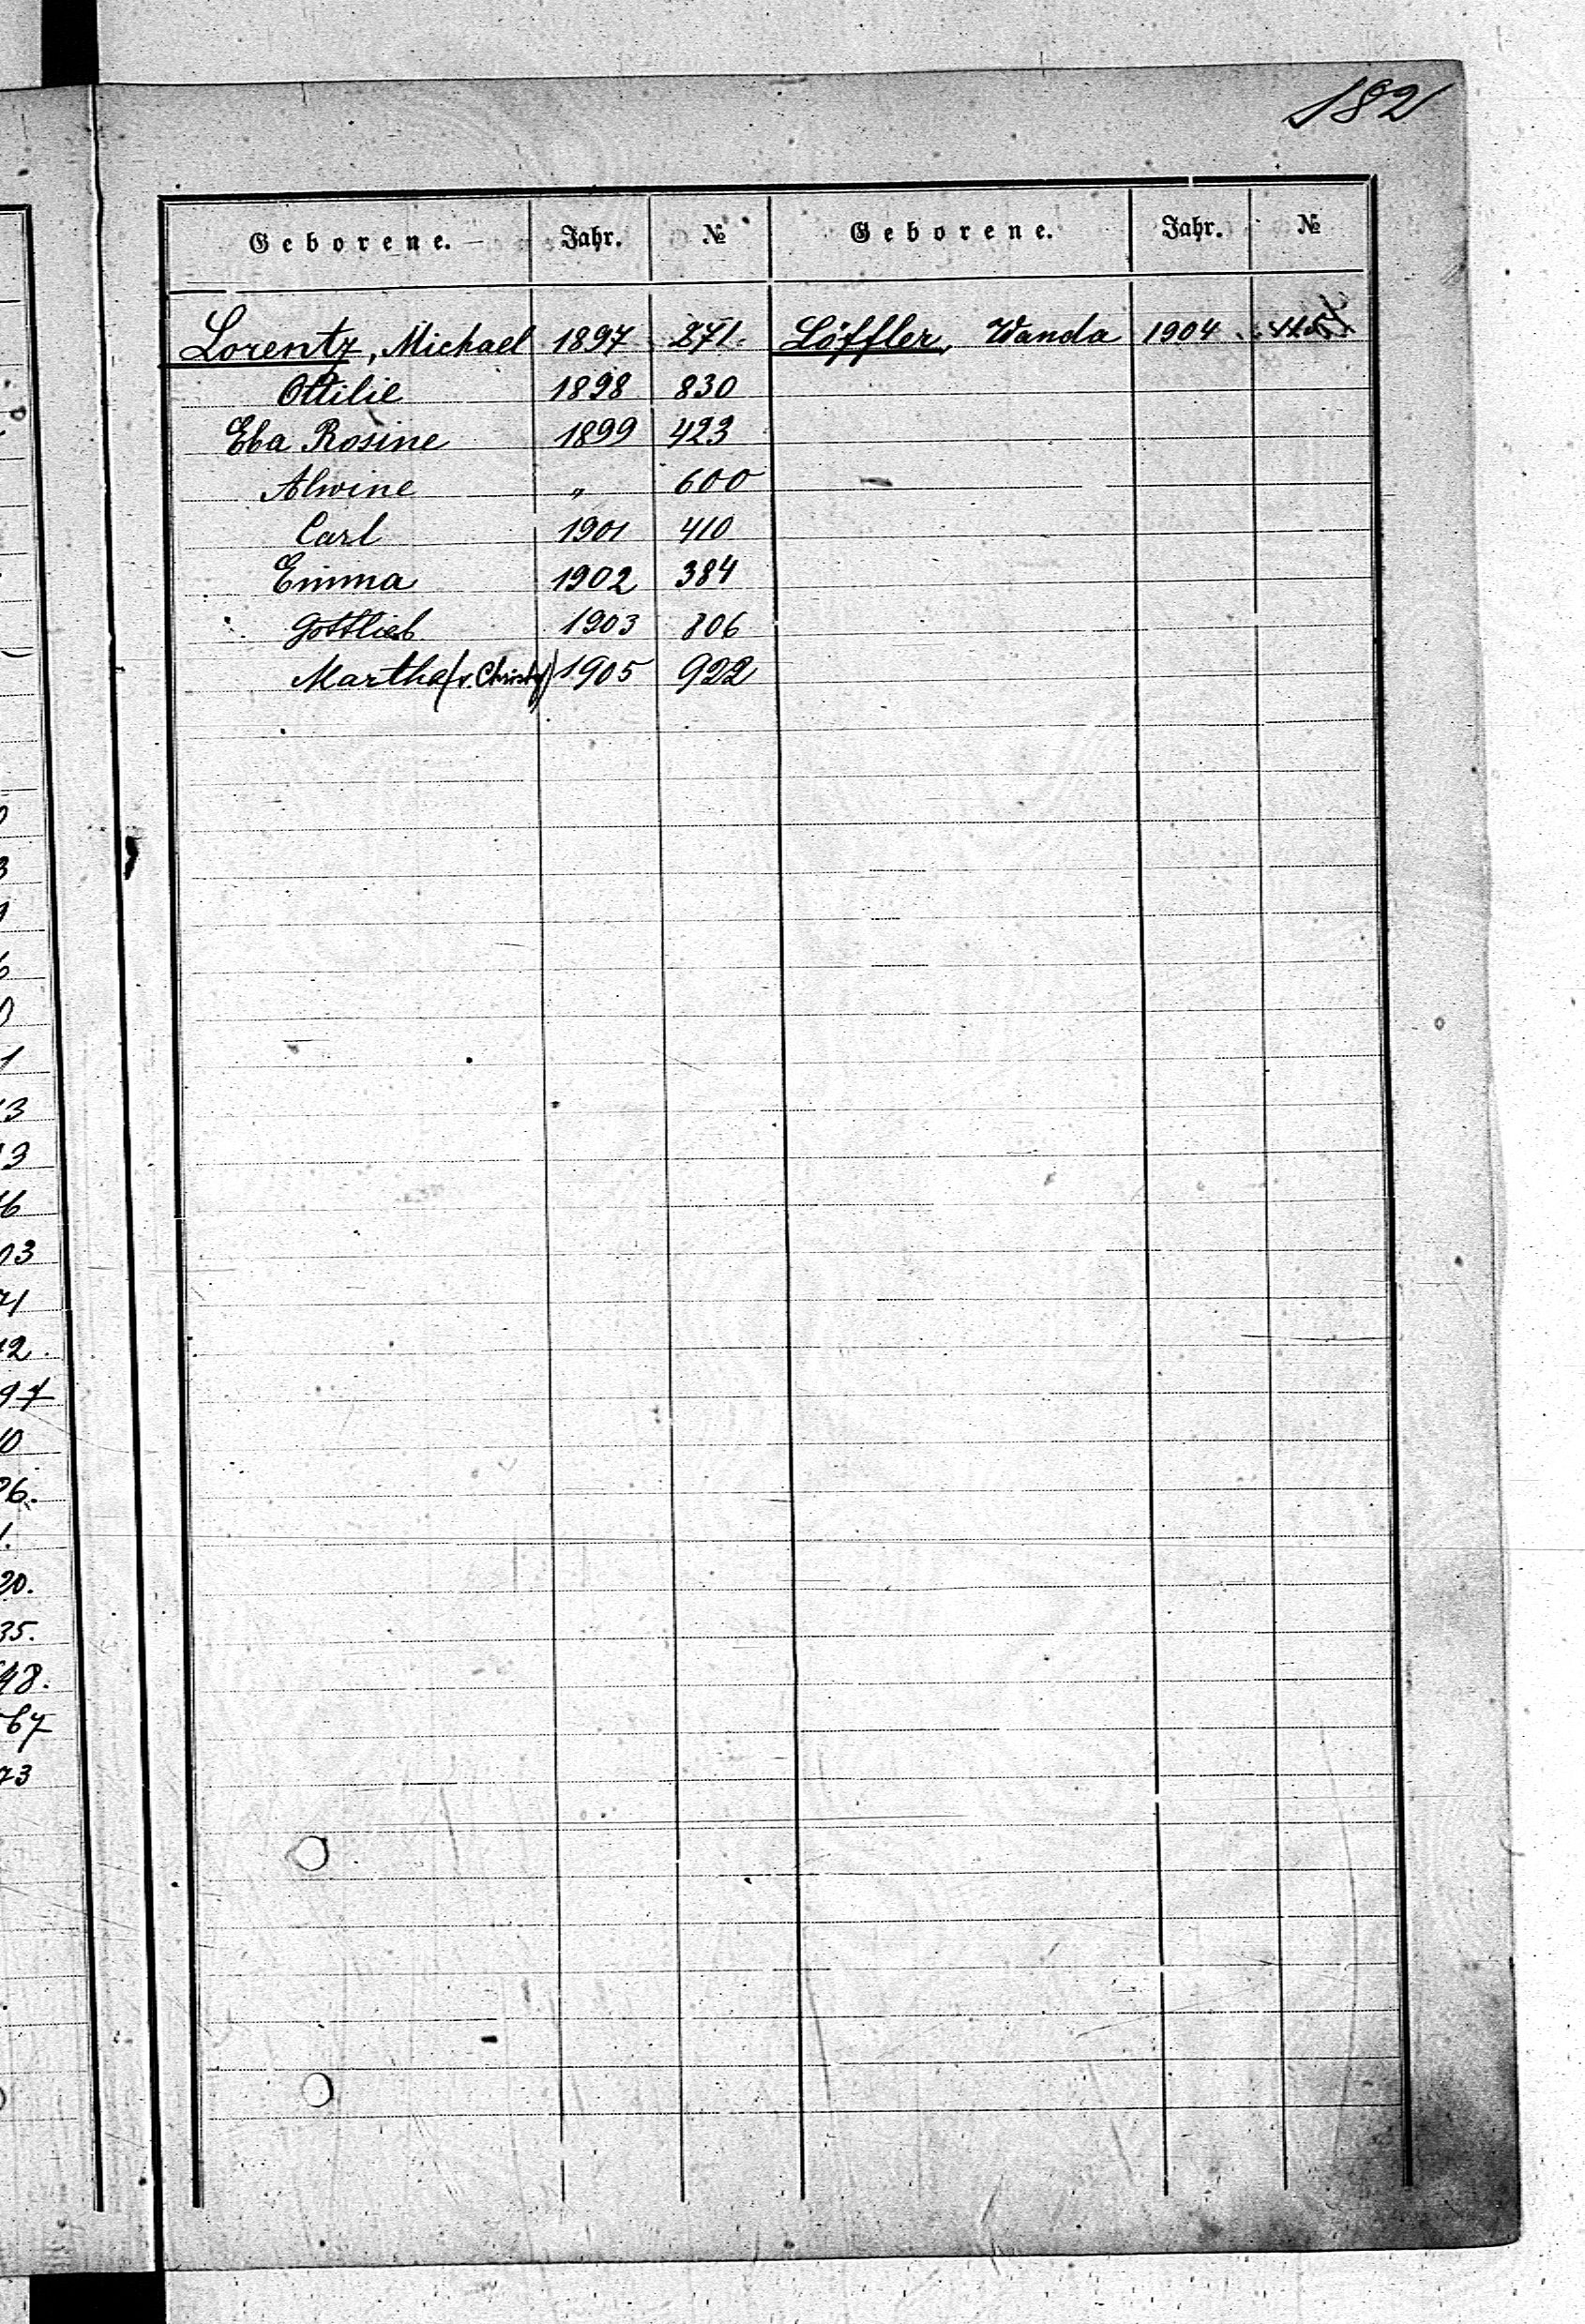 182
Geborene. Jahr. № Geborene. Jahr. №
Lorentz, Michael 1897 271. Löffler, Wanda 1904
Ottilie 1898 830
Eva Rosine 1899 423
Alwine " 600
Carl 1901 410
Emma 1902 384
Gottlieb 1903 806
Martha (v. Christof) 1905 922
3
1
6
0
1
13
13
16
03
71
12.
97
10
26.
1.
20.
35.
48.
67
73